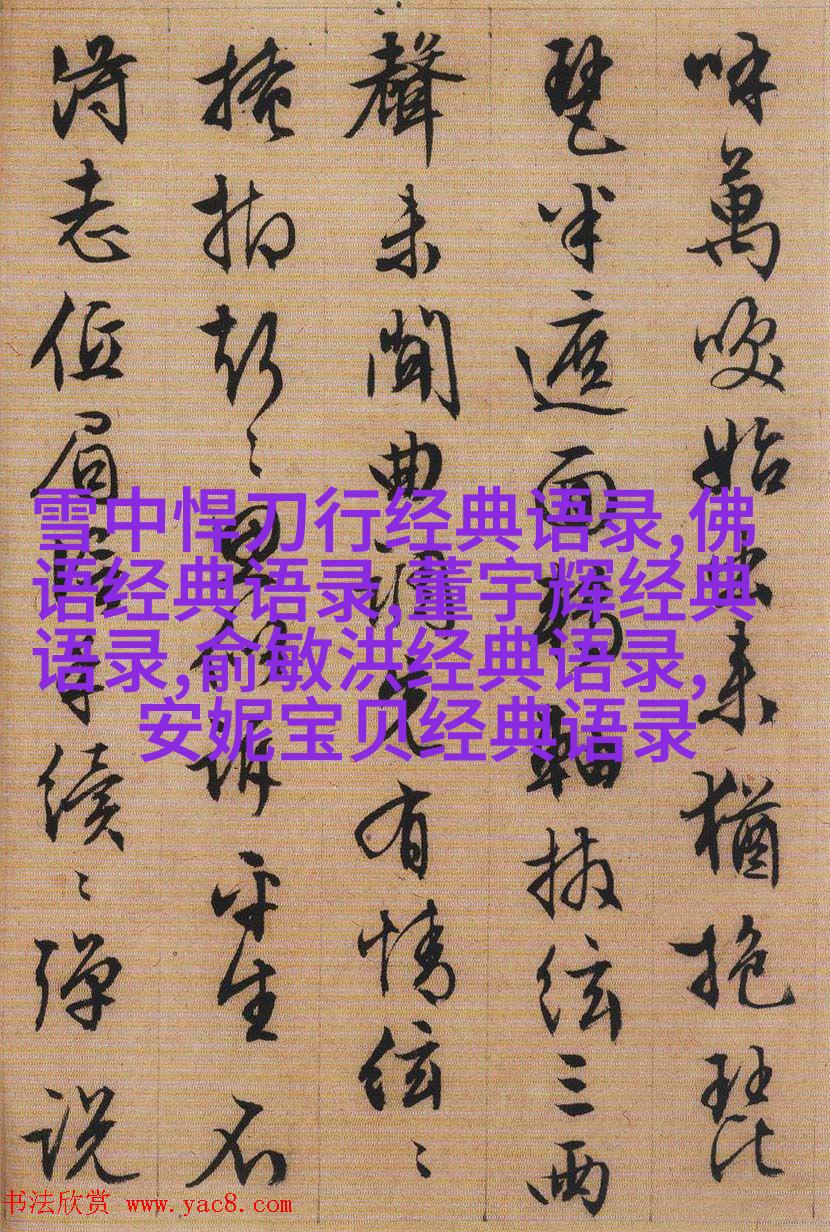 呼萬喚始出来猶抱琵
琶半遮面轉軸撥絃三两
聲未聞曲調先有情絃〻
掩抑聲〻思似訴平生不
得志低眉信手續〻彈説
雪中悍刀行经典语录,佛
语经典语录,董宇辉经典
语录,俞敏洪经典语录,
安妮宝贝经典语录
书法欣赏 www.yac8.com